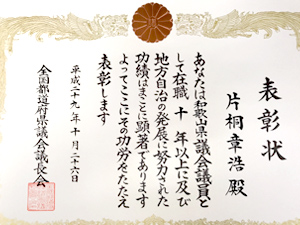 表彰状
片桐章浩殿
あなたは和歌山県議会議員と
して在職十年以上に及び
地方自治の発展に努力された
功績はまことに顕著であります
よってここにその功労をたたえ
表彰します
平成二十九年十月二十六日
全国都道府県議会議長会